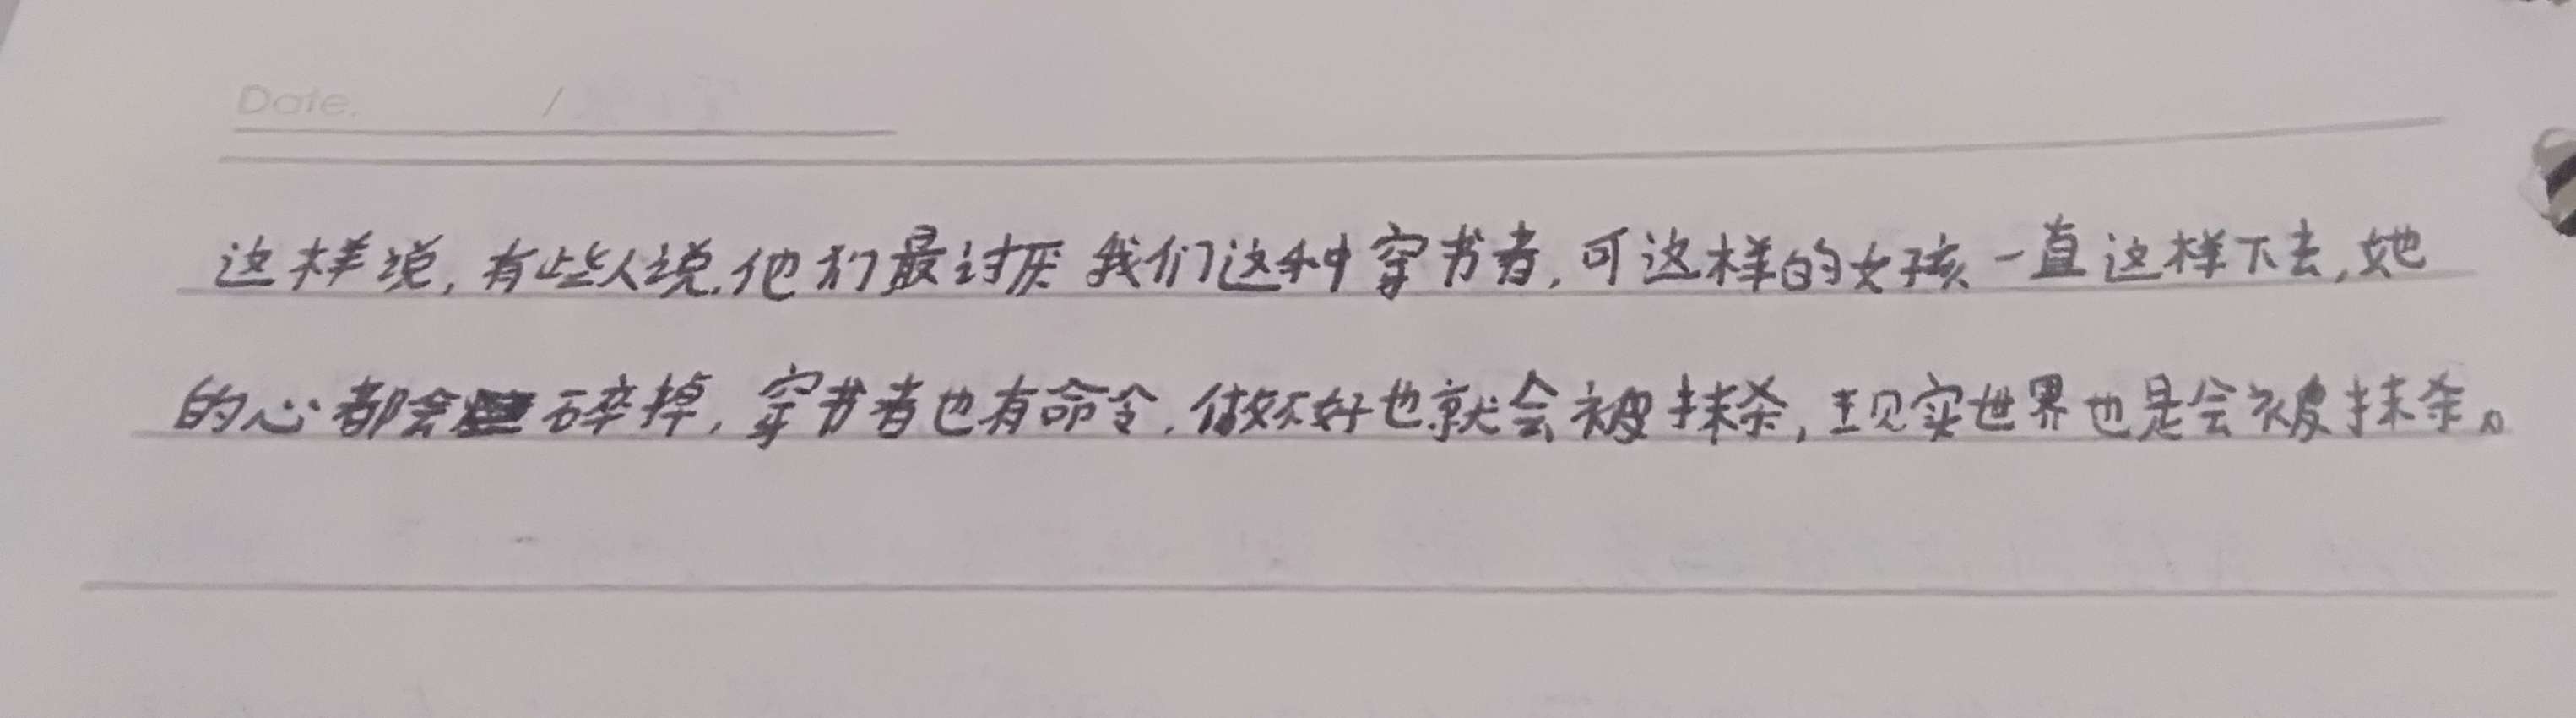 Date. /
这样说,有些人说,他们最讨厌我们这种穿书者,可这样的女孩一直这样下去,她
的心都会碎掉,穿书者也有命令,做不好也就会被抹杀,现实世界也是会被抹杀。